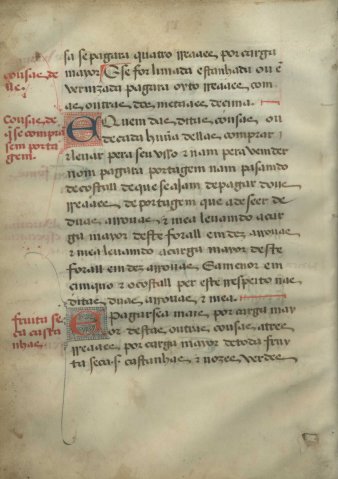 sa se pagara quatro rreaaes por carga
cousas de
mayor E se for limada estanhada ou e
vernizada pagara oyto rreaaes com
as outras dos metaaes decima.
Cousas de
q̃ se compra
sem porta
gem.
E Quem das ditas cousas ou
de cada huũa dellas comprar
e levar pera seu uso e nam pera vender
nom pagara portagem nam pasando
de costall de que se ajam de pagar dous
rreaaes de portagem que a de ser de
duas arrovas e mea levamdo a car
ga mayor deste forall em dez arrovas
e mea levamdo a carga mayor deste
forall em dez arrovas E a menor em
cimquo e o costall per este rrespeito nas
ditas duas arrovas e mea.
fruita se
ca casta
nhas
E pagarsea mais por carga may
or destas outras cousas a tres
rreaaes por carga mayor de toda fruy
ta seca .s. castanhas e nozes verdes